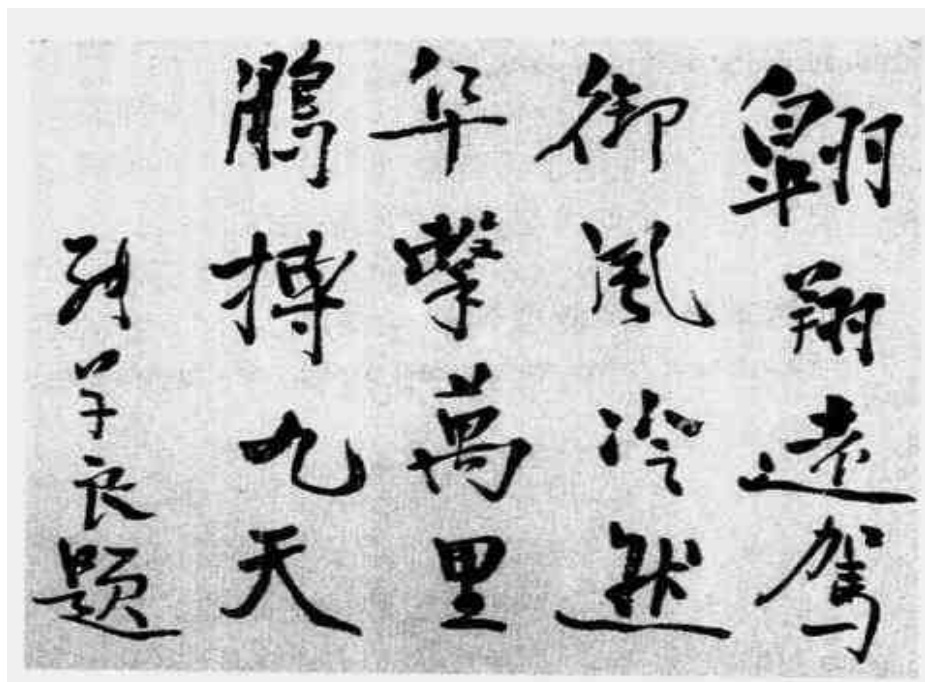 翱翔遠駕
御風冷然
隼擊萬里
鵬搏九天
張學良題